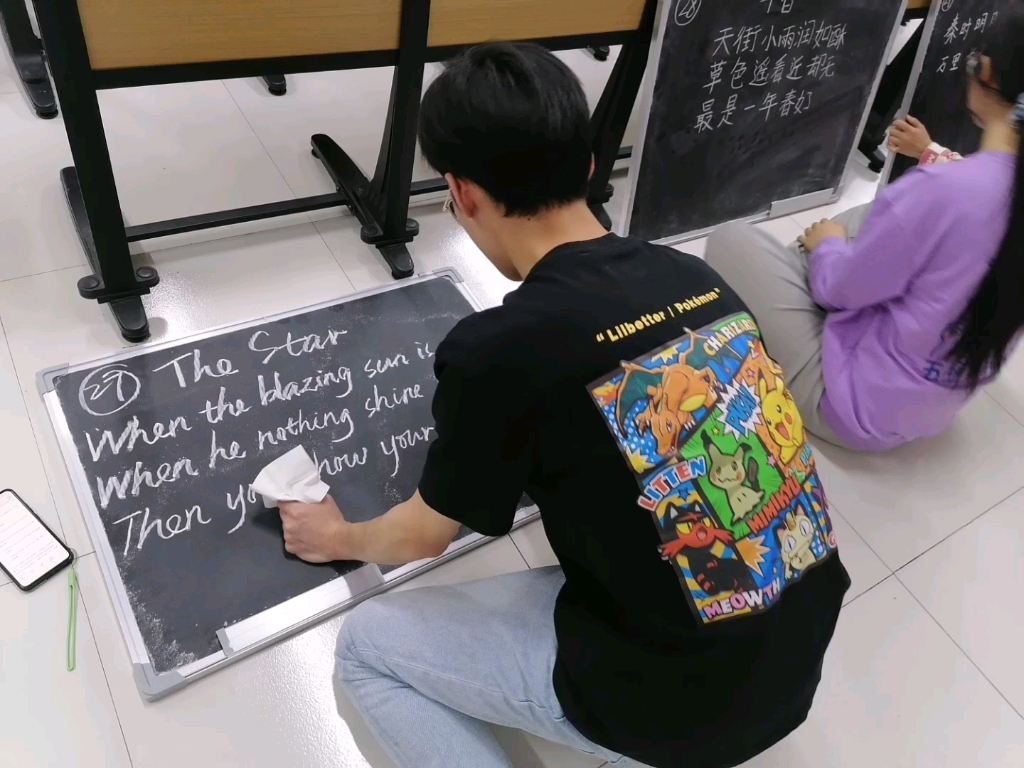 27 The Star
When the blazing sun is
When he nothing shine
Then you show your
28
天街小雨润如酥
草色遥看近却无
最是一年春好
秦时明月
万里
"Lilbetter / Pokémon"
CHARIZARD
PIKA!
LITTEN
MIMIKYU
MEOWTH